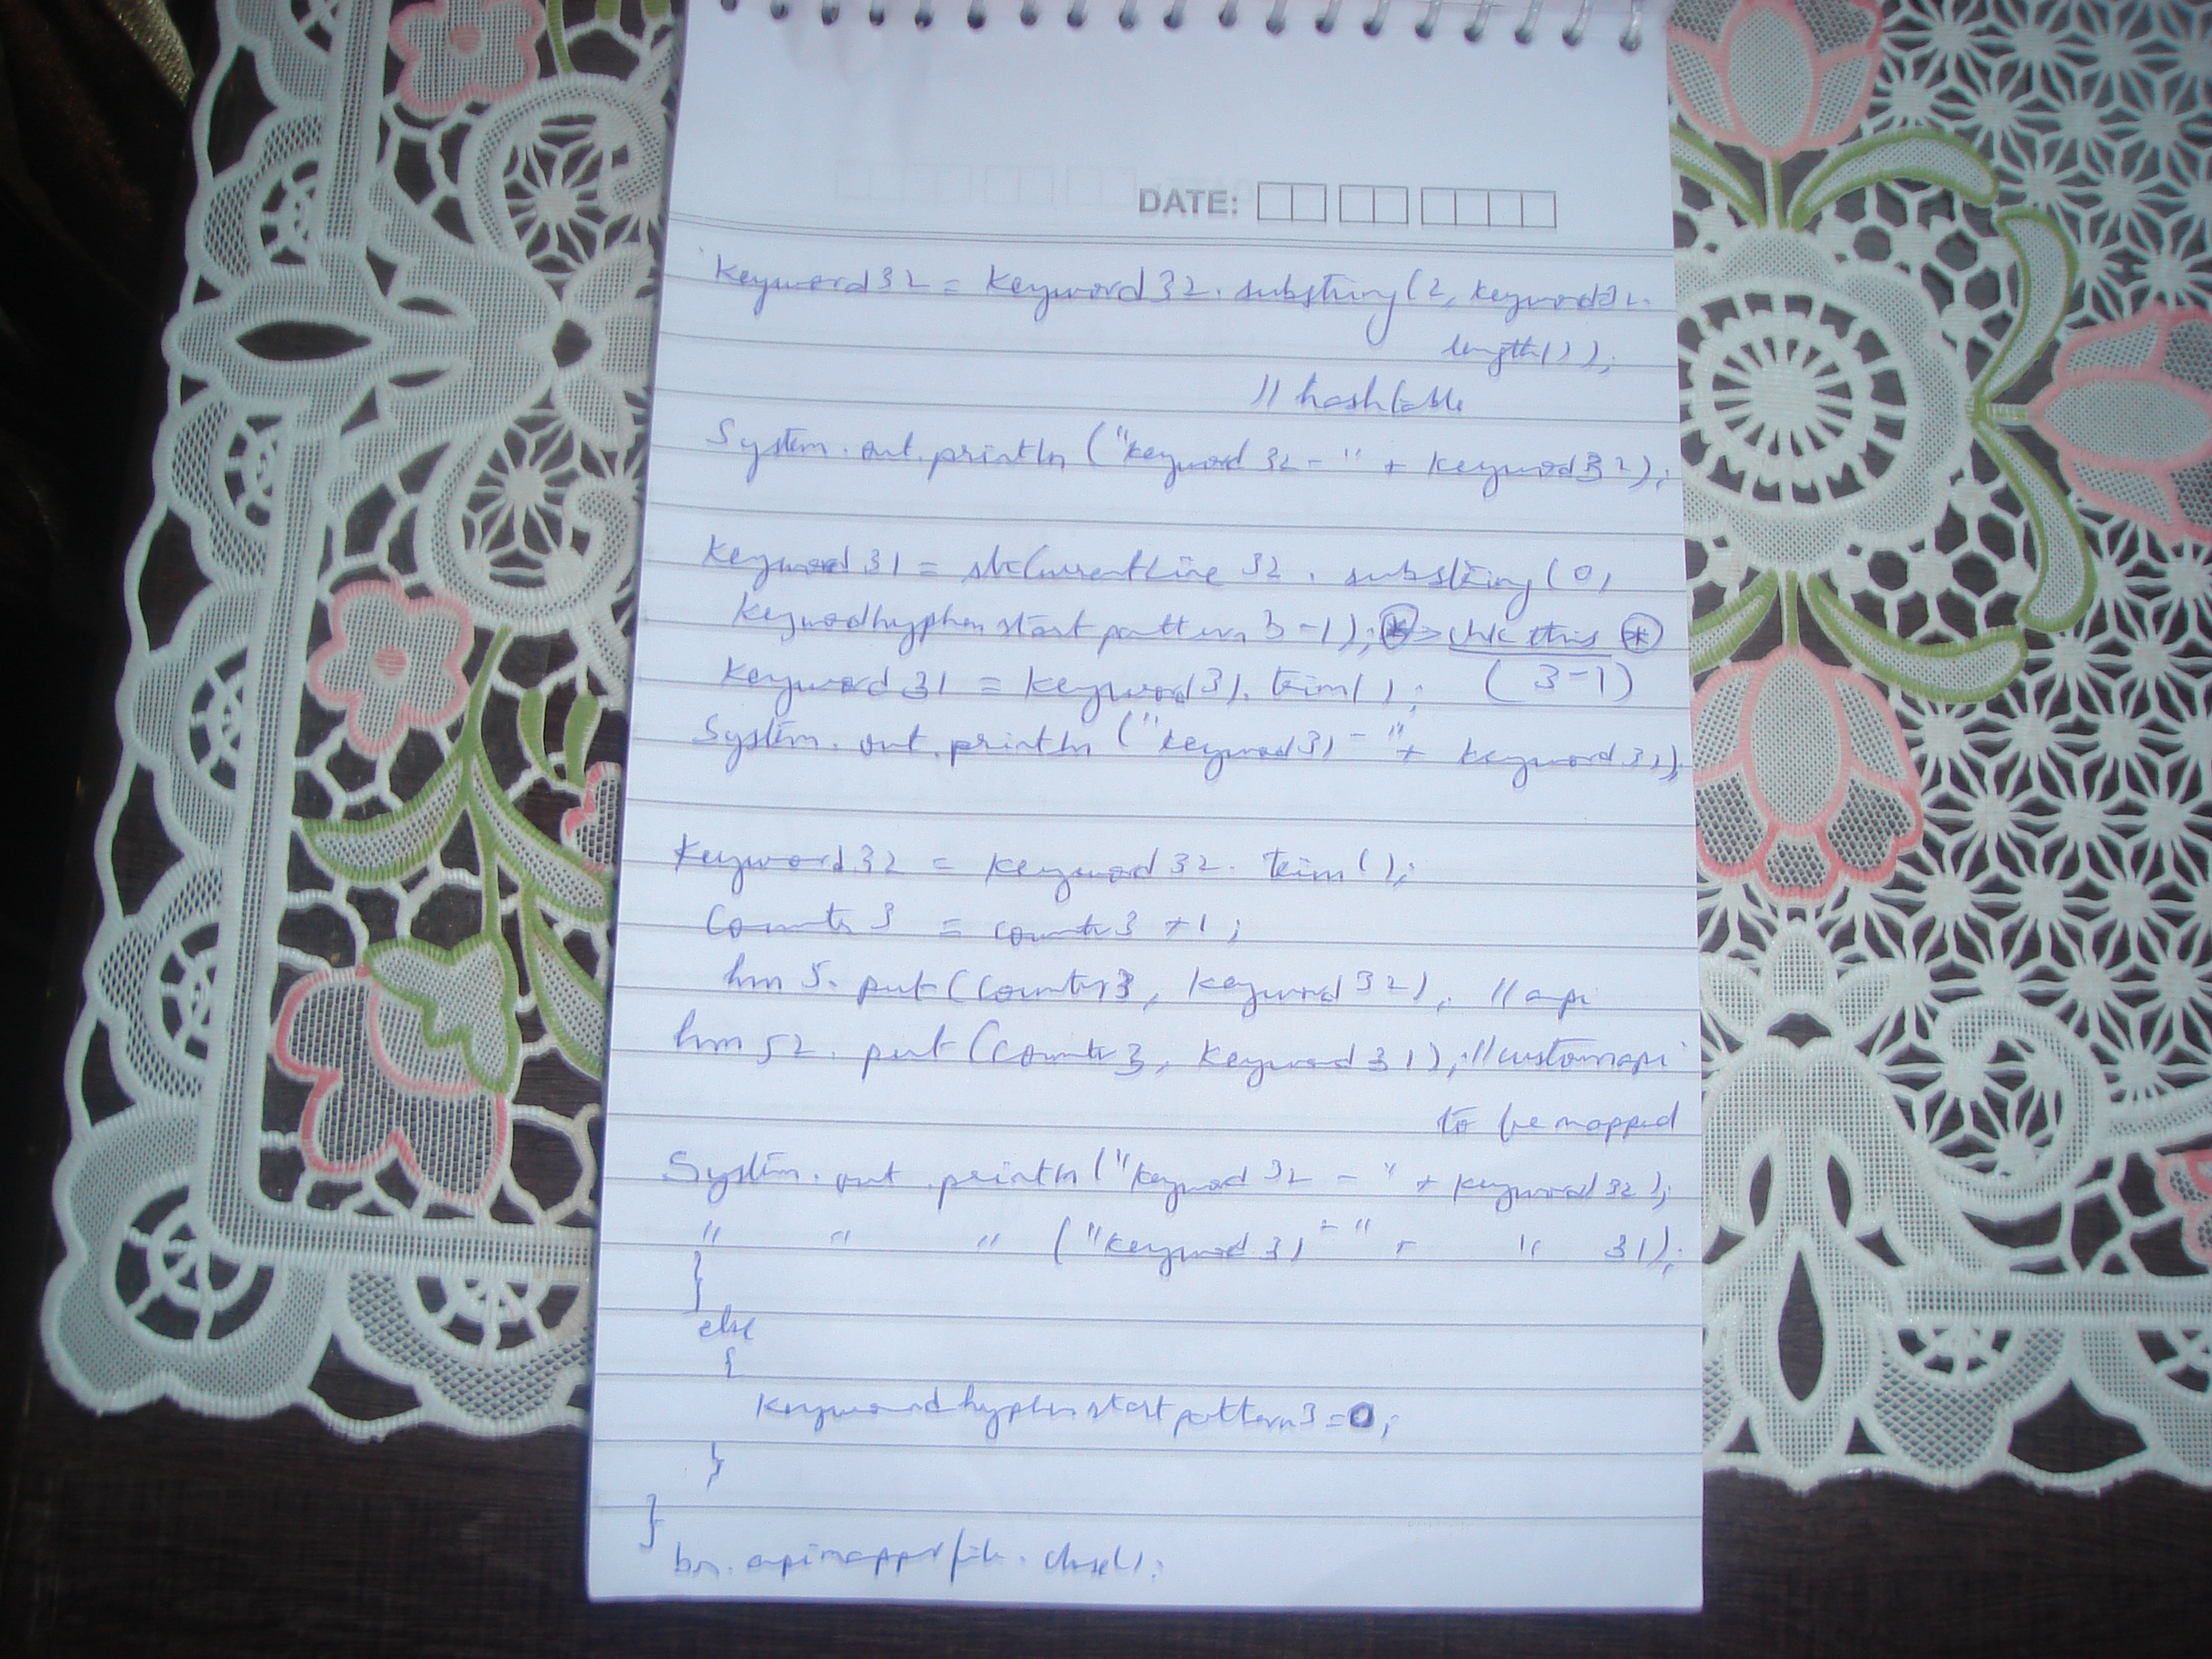 DATE:
Keyword32 = Keyword32.substring(2, keyword32.
length());
// hashtable
System.out.println("keyword 32-" + keyword32);
Keyword31 = strCurrentLine32.substring(0,
Keywordhyphenstartpattern3-1); * > chk this *
Keyword31 = keyword31.trim(); (3-1)
System.out.println("keyword31-" + keyword31);
Keyword32 = keyword32.trim();
Counter3 = counter3 +1;
hm5.put(counter3, keyword32); //api
hm52.put(counter3, keyword31); //customapi
to be mapped
System.out.println("keyword32 -" + keyword32);
" " " ("keyword31-" + " 31);
}
else
{
Keywordhyphenstartpattern3=0;
}
}
br.apimapperfile.close();